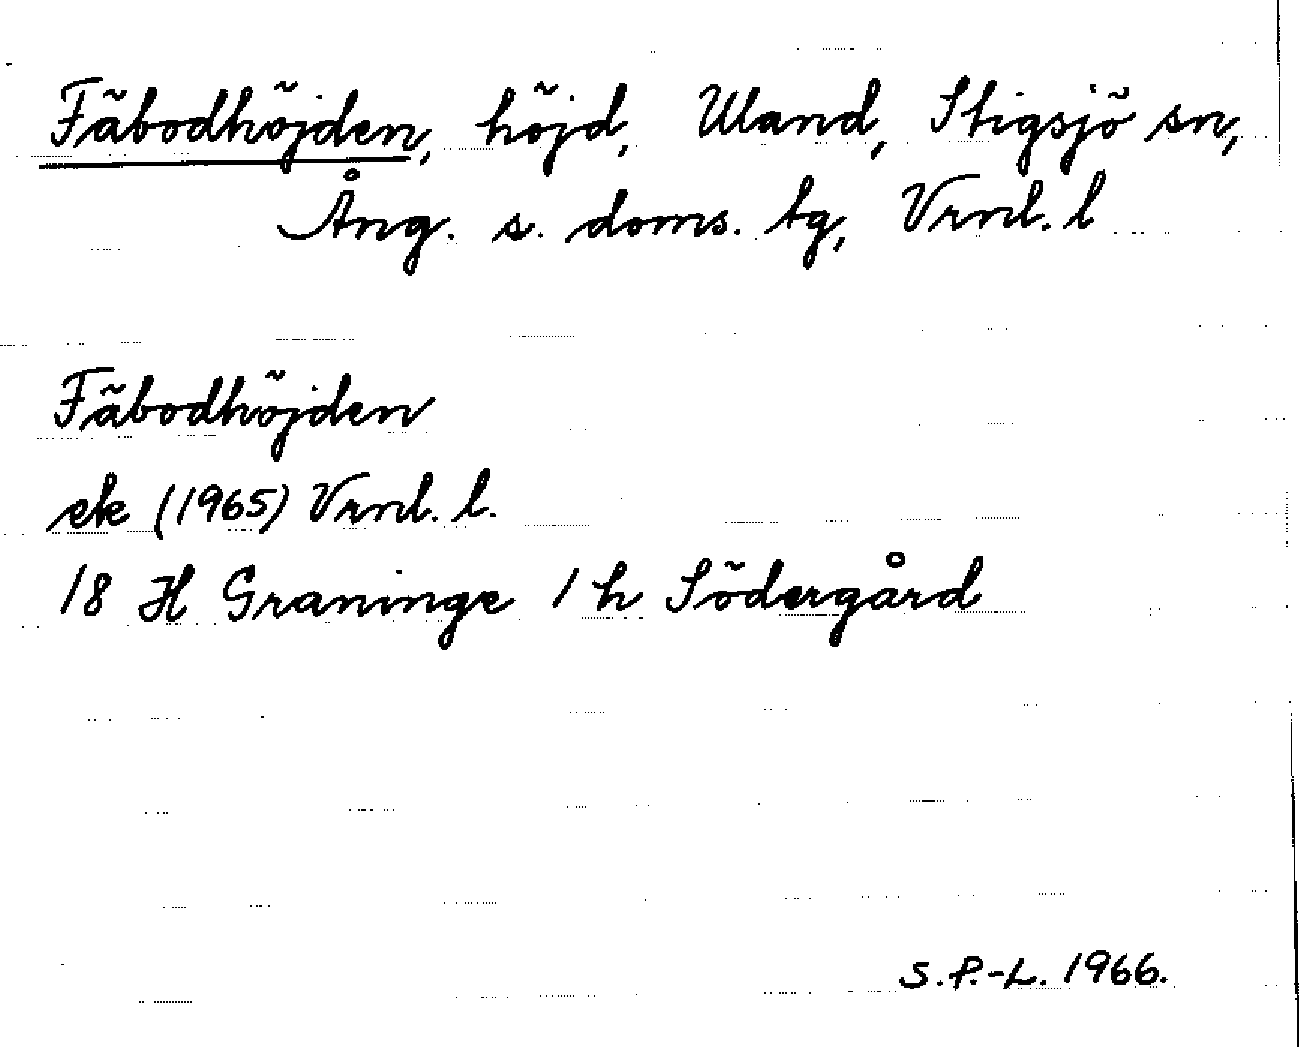 Fäbodhöjden, höjd, Uland, Stigsjö sn,
Ång. s. doms. tg, Vrnl. l
Fäbodhöjden
ek (1965) Vrnl. l.
18 H Graninge 1 h Södergård
S.P.-L. 1966.